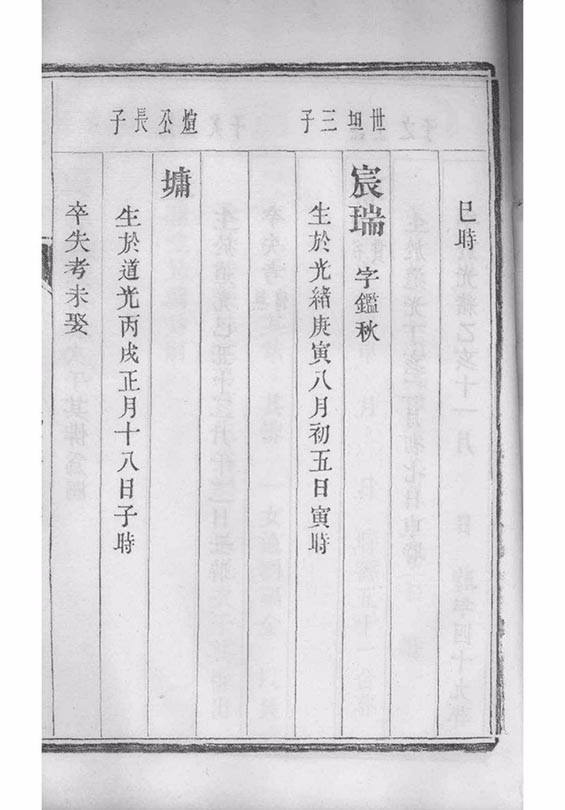 巳時
世坦三子
宸瑞 字鑑秋
生於光緒庚寅八月初五日寅時
煊公長子
墉
生於道光丙戌正月十八日子時
卒失考未娶